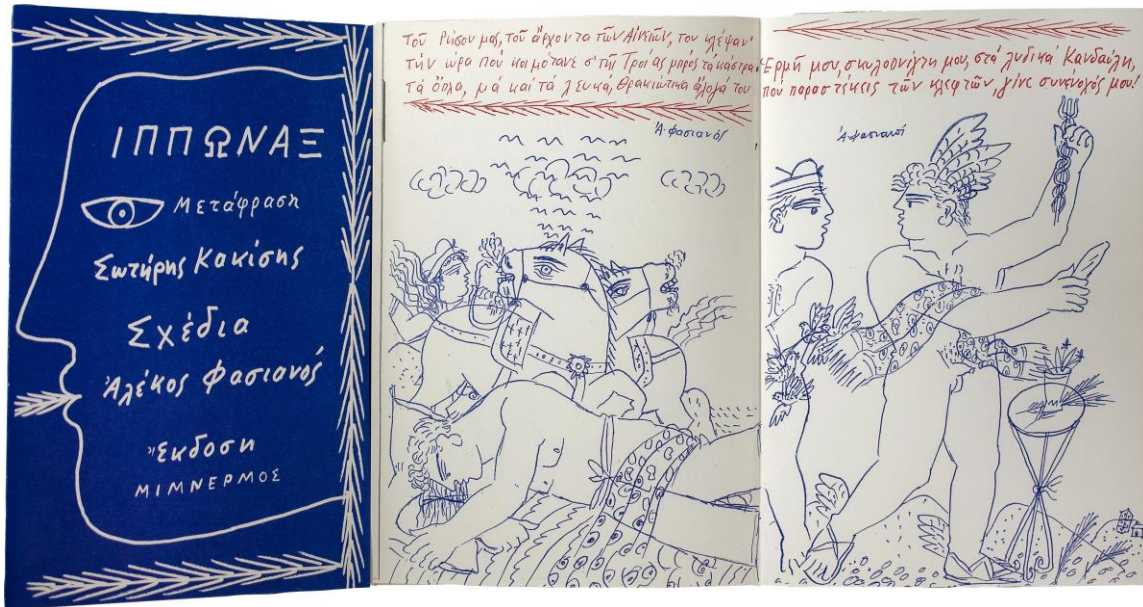 ΙΠΠΩΝΑΞ
Μετάφραση
Σωτήρης Κακίσης
Σχέδια
Ἀλέκος Φασιανός
Ἔκδοση
ΜΙΜΝΕΡΜΟΣ
Τοῦ Ρήσου μας, τοῦ ἄρχοντα τῶν Αἰνιτῶν, του κλέψαν
τήν ὥρα πού κοιμότανε στῆς Τροίας μπρός τά κάστρα
τά ὅπλα, μά καί τά λευκά, θρακιώτικα ἄλογά του
Ἀ. Φασιανός
Ἑρμῆ μου, σκυλοπνίχτη μου, στά λυδικά Κανδαύλη,
πού παραστέκεις τῶν κλεφτῶν, γίνε συνένοχός μου.
Ἀ. Φασιανός